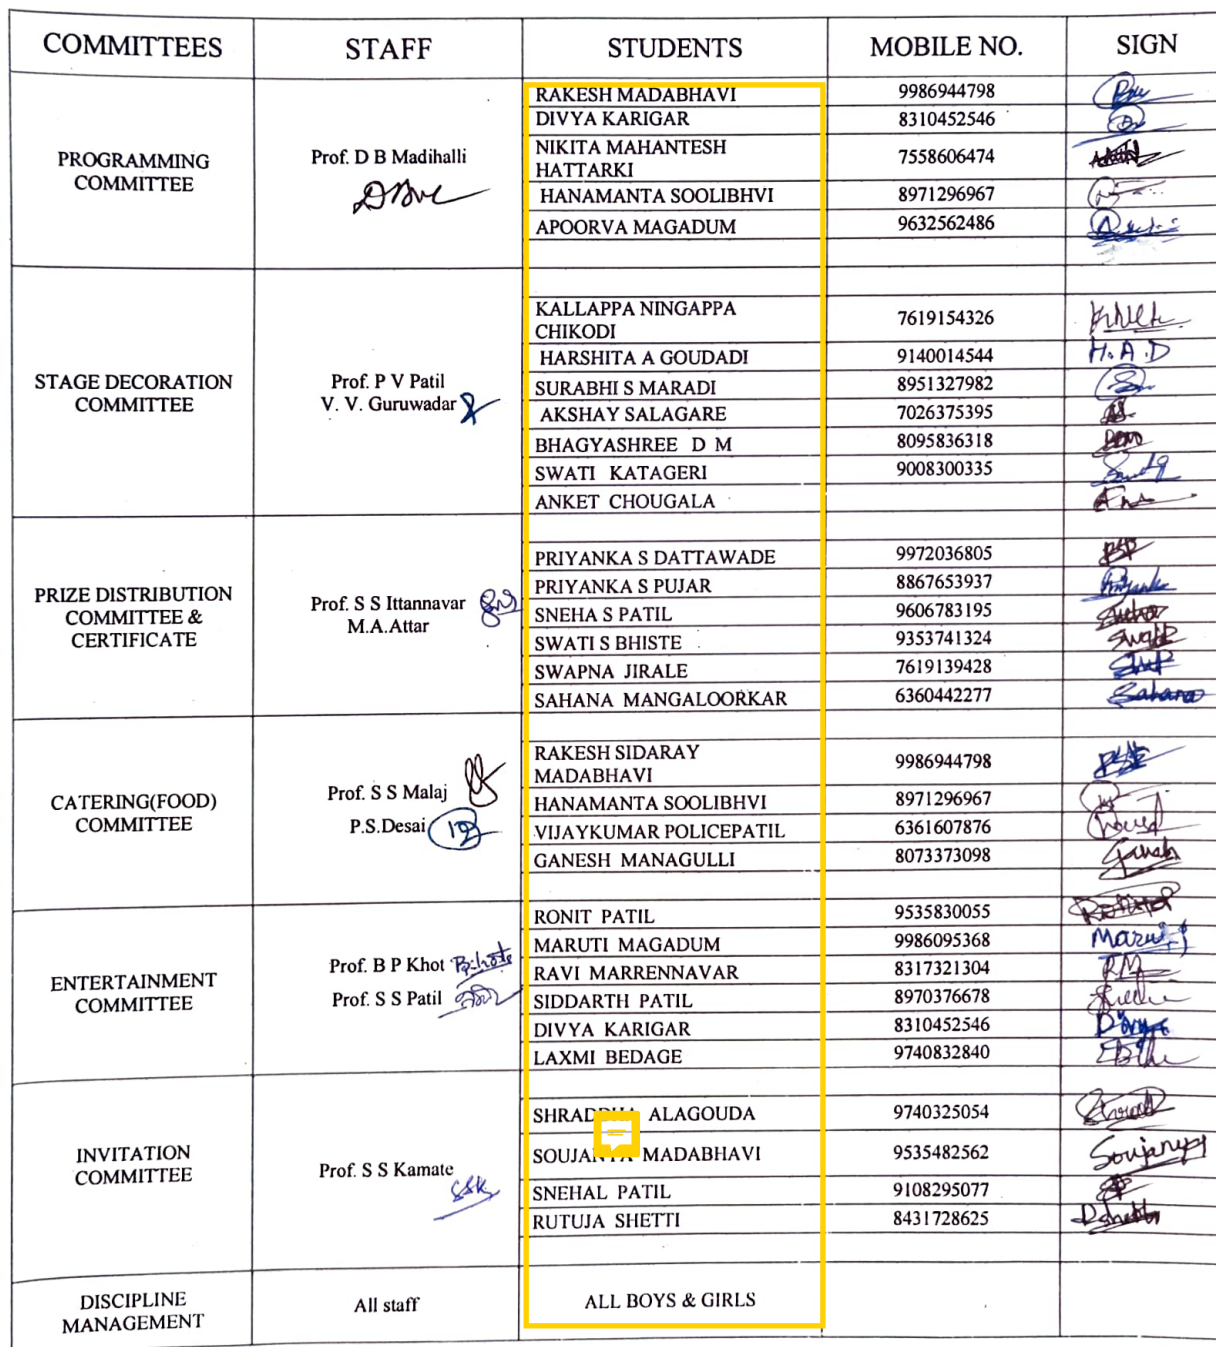 COMMITTEES STAFF STUDENTS MOBILE NO. SIGN
PROGRAMMING COMMITTEE
Prof. D B Madihalli
RAKESH MADABHAVI 9986944798
DIVYA KARIGAR 8310452546
NIKITA MAHANTESH
HATTARKI 7558606474
HANAMANTA SOOLIBHVI 8971296967
APOORVA MAGADUM 9632562486
STAGE DECORATION
COMMITTEE
Prof. P V Patil
V. V. Guruwadar
KALLAPPA NINGAPPA
CHIKODI 7619154326
HARSHITA A GOUDADI 9140014544 H.A.D
SURABHI S MARADI 8951327982
AKSHAY SALAGARE 7026375395
BHAGYASHREE D M 8095836318
SWATI KATAGERI 9008300335
ANKET CHOUGALA
PRIZE DISTRIBUTION
COMMITTEE &
CERTIFICATE
Prof. S S Ittannavar
M.A.Attar
PRIYANKA S DATTAWADE 9972036805
PRIYANKA S PUJAR 8867653937 Priyanka
SNEHA S PATIL 9606783195
SWATI S BHISTE 9353741324
SWAPNA JIRALE 7619139428
SAHANA MANGALOORKAR 6360442277 Sahana
CATERING(FOOD)
COMMITTEE
Prof. S S Malaj
P.S.Desai
RAKESH SIDARAY
MADABHAVI 9986944798
HANAMANTA SOOLIBHVI 8971296967
VIJAYKUMAR POLICEPATIL 6361607876
GANESH MANAGULLI 8073373098
ENTERTAINMENT
COMMITTEE
Prof. B P Khot
Prof. S S Patil
RONIT PATIL 9535830055
MARUTI MAGADUM 9986095368
RAVI MARRENNAVAR 8317321304 RM
SIDDARTH PATIL 8970376678
DIVYA KARIGAR 8310452546 Divya
LAXMI BEDAGE 9740832840
INVITATION
COMMITTEE
Prof. S S Kamate
SSK
SHRADDHA ALAGOUDA 9740325054
SOUJANYA MADABHAVI 9535482562 Soujanya
SNEHAL PATIL 9108295077
RUTUJA SHETTI 8431728625
DISCIPLINE
MANAGEMENT
All staff
ALL BOYS & GIRLS